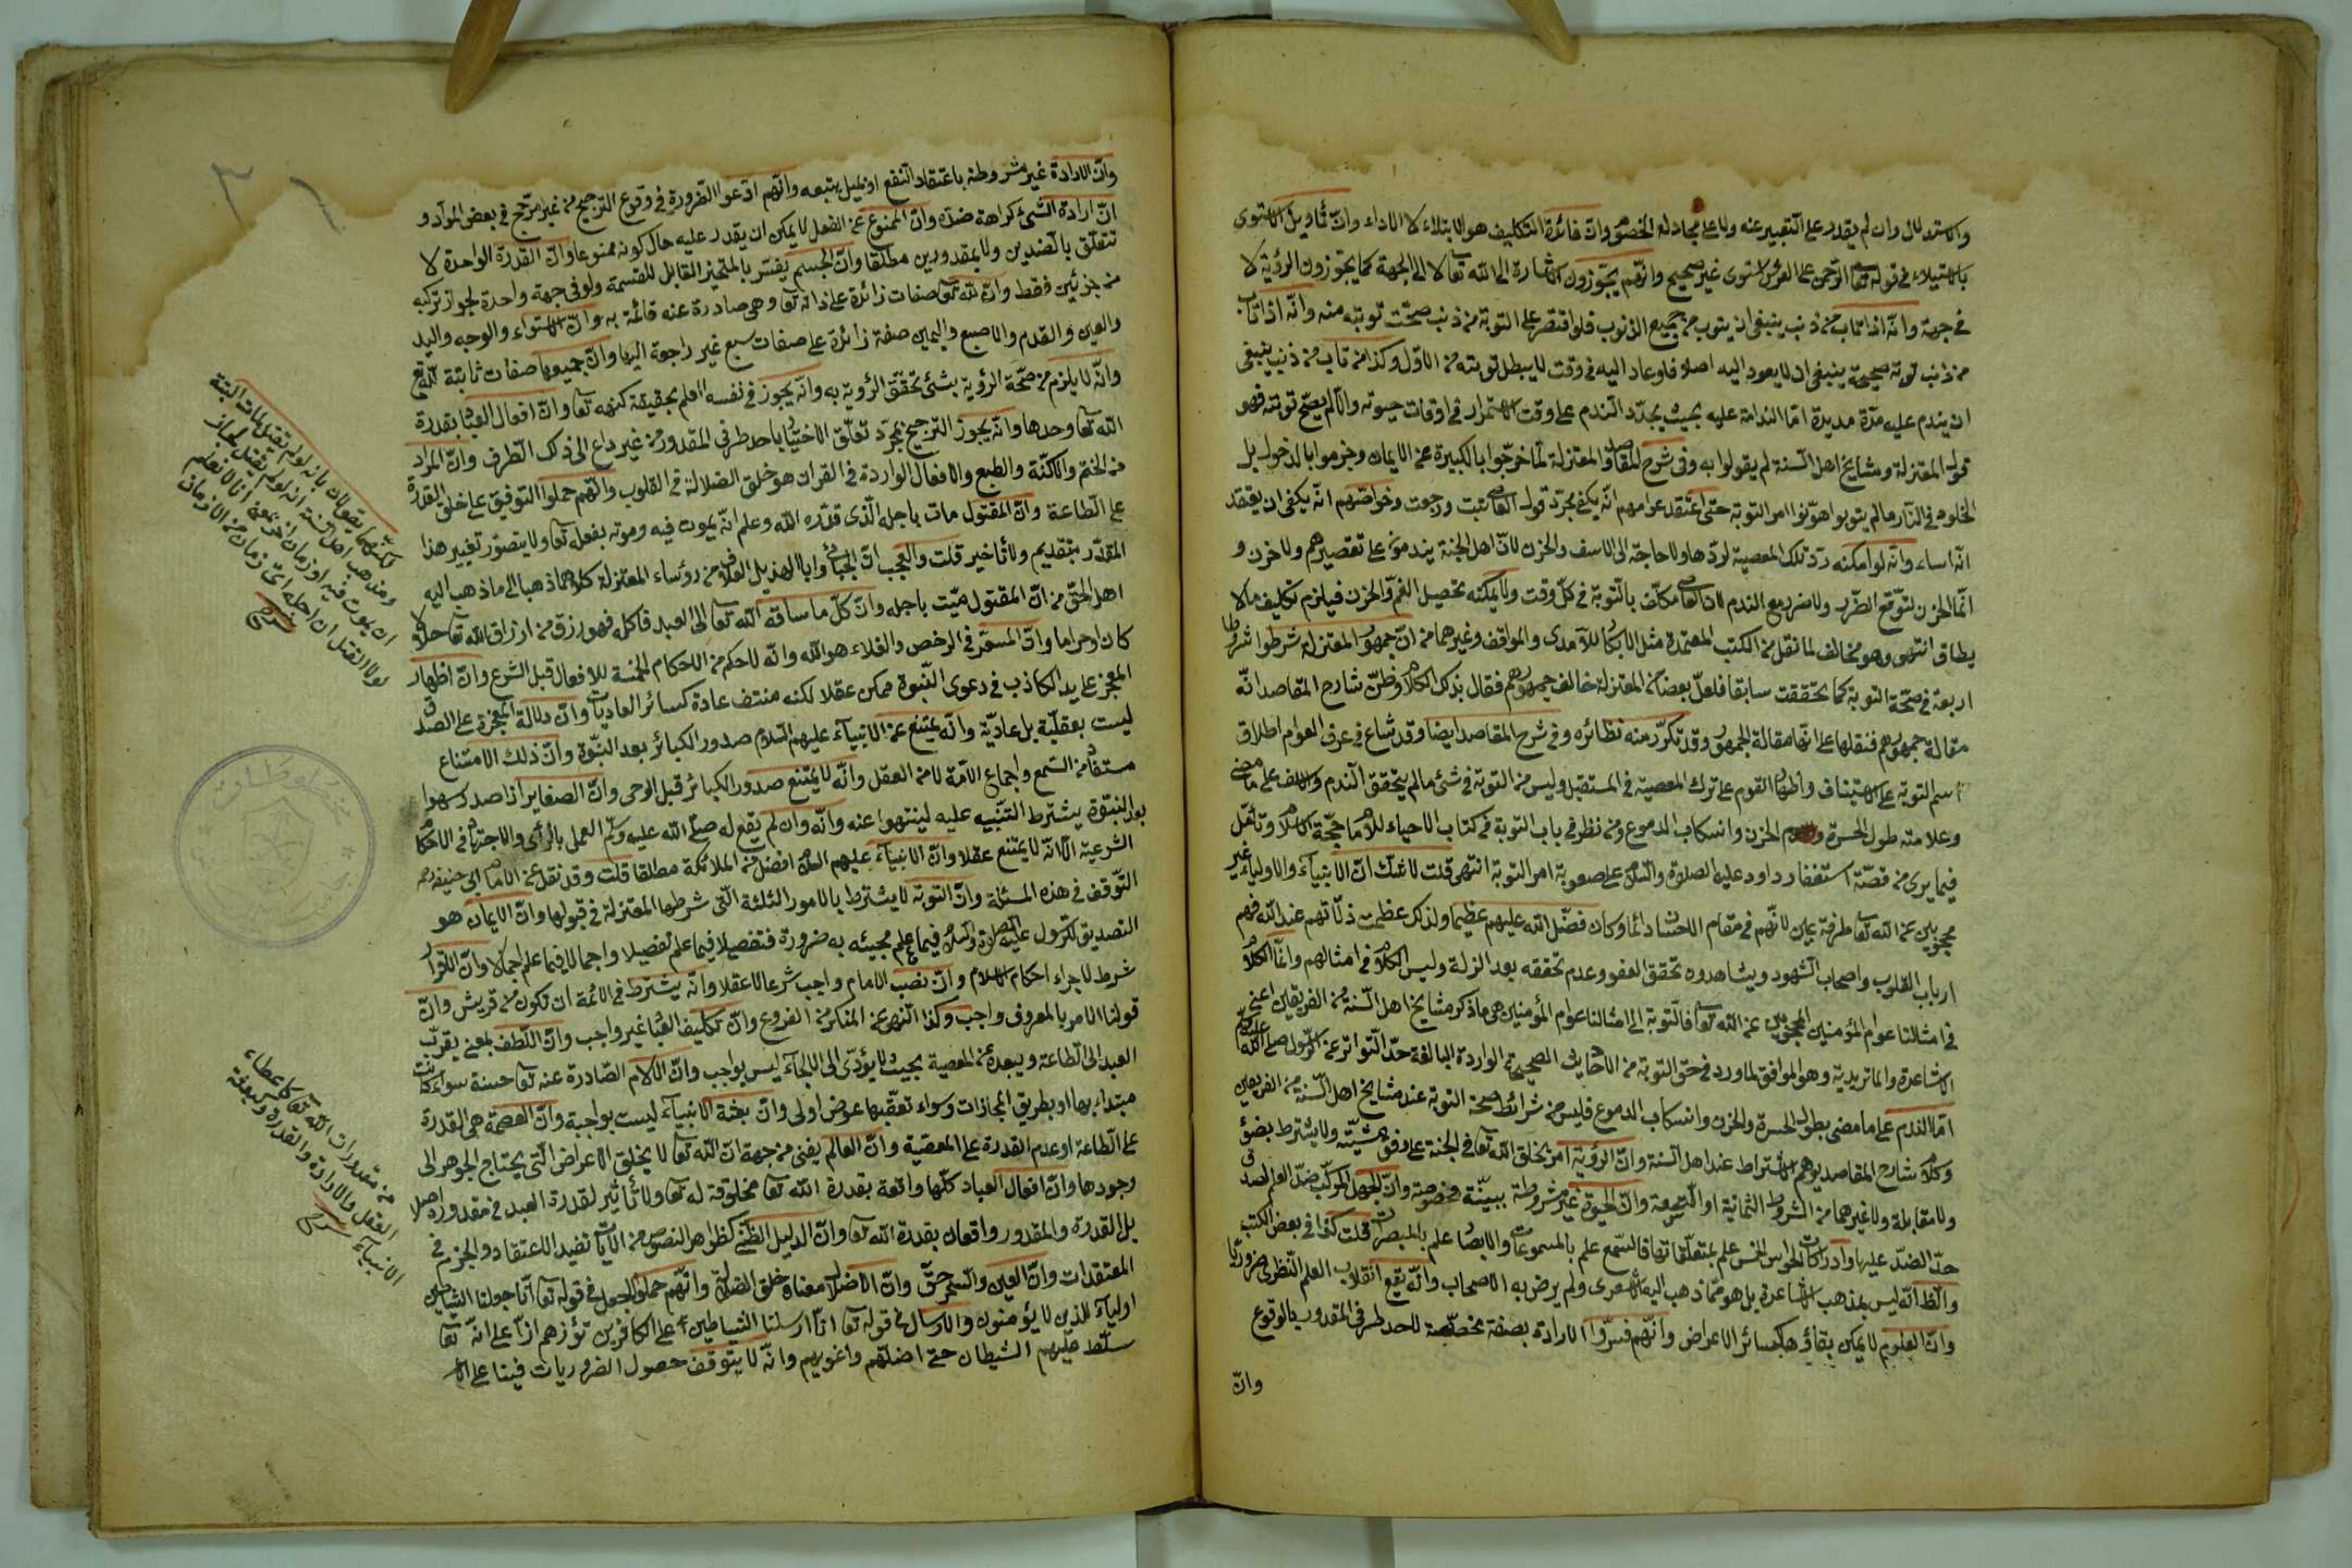 والاستدلال وان لم يقدر على التعبير عنه ولا على مجادلة الخصوم وانّ فائدة التكليف هو الابتلاء لا الاداء وانّ تأويل الاستوى
بالاستيلاء في قوله تعا الرّحمن على العرش استوى غير صحيح وانّهم يجوّزون الاشارة الى الله تعا لا الى الجهة كما يجوّزون الرؤية لا
في جهة وانّه اذا تاب من ذنب ينبغى ان يتوب من جميع الذنوب فلو اقتصر على التوبة من ذنب صحّت توبته منه وانّه اذا تاب
من ذنب توبة صحيحة ينبغى ان لا يعود اليه اصلا فلو عاد اليه في وقت لا يبطل توبته من الاوّل وكذا من تاب من ذنب ينبغى
ان يندم عليه مدّة مديدة امّا الندامة عليه بحيث يجدّد النّدم على وقت الاستمرار في اوقات حيوته والّا لم يصحّ توبته فهو
قول المعتزلة ومشايخ اهل السّنة لم يقولوا به وفى شرح المقاصد والمعتزلة لمّا خرجوا بالكبيرة عن الايمان وجزموا بالدخول بل
الخلود في النّار ما لم يتوبوا هوّنوا امر التوبة حتى اعتقد عوامهم انّه يكفى مجرّد قول العاصى تبت ورجعت وخواصّهم انّه يكفى ان يعتقد
انّه اساء وانّه لو امكنه ردّ تلك المعصية لردّها ولا حاجة الى الاسف والحزن لانّ اهل الجنة يندمون على تقصيرهم ولا حزن و
انّما الحزن لتوقّع الضّرر ولا ضرر مع الندم لانّ العاصى مكلّف بالتّوبة في كلّ وقت ولا يمكنه تحصيل الغمّ والحزن فيلزم تكليف ما لا
يطاق انتهى وهو مخالف لما نقل من الكتب المعتمدة مثل الابكار للآمدى والمواقف وغيرهما من انّ جمهور المعتزلة شرطوا شروطا
اربعة في صحّة التوبة كما تحققت سابقا فلعلّ بعضا من المعتزلة خالف جمهورهم فقال بذلك الكلام وظنّ شارح المقاصد انّه
مقالة جمهورهم فنقلها على انّها مقالة الجمهور وقد تكرّر منه نظائره وفى شرح المقاصد ايضا وقد شاع في عرف العوام اطلاق
اسم التوبة على الاستيناف واظهار القوم على ترك المعصية في المستقبل وليس من التوبة في شئ ما لم يتحقق النّدم والاسف على ما مضى
وعلامته طول الحسرة والحزن وانسكاب الدموع ومن نظر في باب التوبة في كتاب الاحياء للامام حجّة الاسلام وتأمّل
فيما يرى من قصّة استغفار داود عليه الصلوة والسّلام على صعوبة امر التوبة انتهى قلت لا شك انّ الانبياء والاولياء غير
محجوبين عن الله تعا طرفة عين لانّهم في مقام الاحسان دائما وكان فضل الله عليهم عظيما ولذلك عظمت ذلّاتهم عند الله فهم
ارباب القلوب واصحاب الشهود ويشاهدون تحقق العفو وعدم تحققه بعد الزلّة وليس الكلام في امثالهم وانّما الكلام
في امثالنا عوام المؤمنين المحجوبين عن الله تعا فالتوبة الى امثالنا عوام المؤمنين هى ما ذكر مشايخ اهل السّنة من الفريقين اعنى
الاشاعرة والماتريدية وهو الموافق لما ورد في حق التوبة من الاحاديث الصحيحة الواردة البالغة حدّ التواتر عن الرسول صلى الله عليه وسلم
امّا الندم على ما مضى بطول الحسرة والحزن وانسكاب الدموع فليس من شرائط صحة التوبة عند مشايخ اهل السّنة من الفريقين
وكلام شارح المقاصد يوهم الاشتراط عند اهل السّنة وانّ الرؤية امر يخلق الله تعا في الجنة على وفق مشيّته ولا يشترط بضوء
ولا مقابلة ولا غيرهما من الشروط الثمانية او التسعة وانّ الحيوة غير مشروطة ببينّة مخصوصة وانّ الجهل المركّب ضدّ العلم لصدق
حدّ الضدّ عليها وادراكات الحواس الخمس علم بمتعلّقاتها فالسّمع علم بالمسموعات والابصار علم بالمبصرات قلت كذا في بعض الكتب
والظ انّه ليس بمذهب الاشاعرة بل هو ممّا ذهب اليه الاشعرى ولم يرض به الاصحاب وانّه يقع انقلاب العلم النّظرى ضروريّا
وانّ العلوم لا يمكن بقاؤها كسائر الاعراض وانّهم فسّروا الارادة بصفة مخصّصة لاحد طرفى المقدور بالوقوع
وانّ
وانّ الارادة غير مشروطة باعتقاد النّفع او بميل يتبعه وانّهم ادّعوا الضّرورة في وقوع الترجيح من غير مرجّح في بعض الموادّ و
انّ ارادة الشّئ كراهة ضدّه وانّ الممنوع عن الفعل لا يمكن ان يقدر عليه حال كونه ممنوعا وانّ القدرة الواحدة لا
تتعلّق بالضّدين ولا بمقدورين مطلقا وانّ الجسم يفسّر بالمتحيّز القابل للقسمة ولو في جهة واحدة لجواز تركّبه
من جزئين فقط وانّ لله تعا صفات زائدة على ذاته تعا وهى صادرة عنه قائمة به وانّ الاستواء والوجه واليد
والعين والقدم والاصبع واليمين صفة زائدة على صفات سبع غير راجعة اليها وانّ جميعها صفات ثابتة لله تع
وانّه لا يلزم من صحّة الرؤية بشئ تحقّق الرؤية به وانّه يجوز في نفسه العلم بحقيقة كنهه تعا وانّ افعال العباد بقدرة
الله تعا وحدها وانّه يجوز الترجيح بمجرّد تعلّق الاختيار باحد طرفى المقدور من غير داع الى ذلك الطّرف وانّ المراد
من الختم والاكنّة والطبع والاقفال الواردة في القران هو خلق الضلالة في القلوب وانّهم حملوا التوفيق على خلق القدرة
على الطّاعة وانّ المقتول مات باجله الّذى قدّره الله وعلم انّه يموت فيه وموته بفعله تعا ولا يتصوّر تغيير هذا
المقدّر بتقديم ولا تأخير قلت والعجب انّ الجبائى وابا الهذيل العلاف من رؤساء المعتزلة كلاهما ذهبا الى ما ذهب اليه
اهل الحقّ من انّ المقتول ميّت باجله وانّ كلّ ما ساقه الله تعا الى العبد فاكله فهو رزق من ارزاق الله تعا حلالا
كان او حراما وانّ المسعّر في الرخص والغلاء هو الله وانّه لا حكم من الاحكام الخمسة للافعال قبل الشرع وانّ اظهار
المعجز على يد الكاذب في دعوى النّبوة ممكن عقلا لكنه منتف عادة كسائر العاديات وانّ دلالة المعجزة على الصدق
ليست بعقليّة بل عاديّة وانّه يمتنع عن الانبياء عليهم السّلام صدور الكبائر بعد النبوّة وانّ ذلك الامتناع
مستفاد من السّمع واجماع الامّة لا من العقل وانّه لا يمتنع صدور الكبائر قبل الوحى وانّ الصغاير اذا صدر سهوا
بعد النبوّة يشترط التّنبيه عليه لينتهوا عنه وانّه وان لم يقع له صلّى الله عليه وسلم العمل بالرأى والاجتهاد في الاحكام
الشرعيّة الّا انّه لا يمتنع عقلا وانّ الانبياء عليهم السلام افضل من الملائكة مطلقا قلت وقد نقل عن الامام ابى حنيفة رحمه
التّوقف في هذه المسئلة وانّ التوبة لا يشترط بالامور الثلثة الّتى شرطها المعتزلة في قبولها وانّ الايمان هو
التصديق للرّسول عليه الصلوة والسلام فيما علم مجيئه به ضرورة فتفصيلا فيما علم تفصيلا واجمالا فيما علم اجمالا وانّ الاقرار
شرط لاجراء احكام الاسلام وانّ نصب الامام واجب شرعا لا عقلا وانّه يشترط في الائمة ان تكون من قريش وانّ
قولنا الامر بالمعروف واجب وكذا النّهى عن المنكر من الفروع وانّ تكليف العباد غير واجب وانّ اللّطف بمعنى يقرّب
العبد الى الطّاعة ويبعده عن المعصية بحيث لا يؤدّى الى الالجاء ليس بواجب وانّ الآلام الصّادرة عنه تعا حسنة سواء كانت
مبتداء بها او بطريق المجازات وسواء تعقّبها عوض اولى وانّ بعثة الانبياء ليست بواجبة وانّ العصمة هى القدرة
على الطّاعة او عدم القدرة على المعصية وانّ العالم يفنى من جهة انّ الله تعا لا يخلق الاعراض الّتى يحتاج الجوهر الى
وجودها وانّ افعال العباد كلّها واقعة بقدرة الله تعا مخلوقة له تعا ولا تأثير لقدرة العبد في مقدوره اصلا
بل القدرة والمقدور واقعان بقدرة الله تعا وانّ الدليل الظنّى كظواهر النصوص من الآيات تفيد الاعتقاد والجزم في
المعتقدات وانّ العين والسّحر حقّ وانّ الاضلال معناه خلق الضلال وانّهم حملوا الجعل في قوله تعا انّا جعلنا الشياطين
اولياء للذين لا يؤمنون والارسال في قوله تعا انّا ارسلنا الشياطين على الكافرين تؤزهم ازّا على انّه تعا
سلّط عليهم الشيطان حتى اضلّهم واغويهم وانّه لا يتوقف حصول الضروريات فينا على
لكنّهما يقولان بانه لو لم يقتل لمات البتة
ومذهب اهل السّنة انه لو لم يقتل لجاز
ان يموت فيه او زمان اخر بمعنى انا لا نعلم
لولا القتل ان اجله اىّ زمان من الازمان
من مقدورات الله تعا كاعطاء
العقل والارادة والقدرة وكبعثة
الانبياء